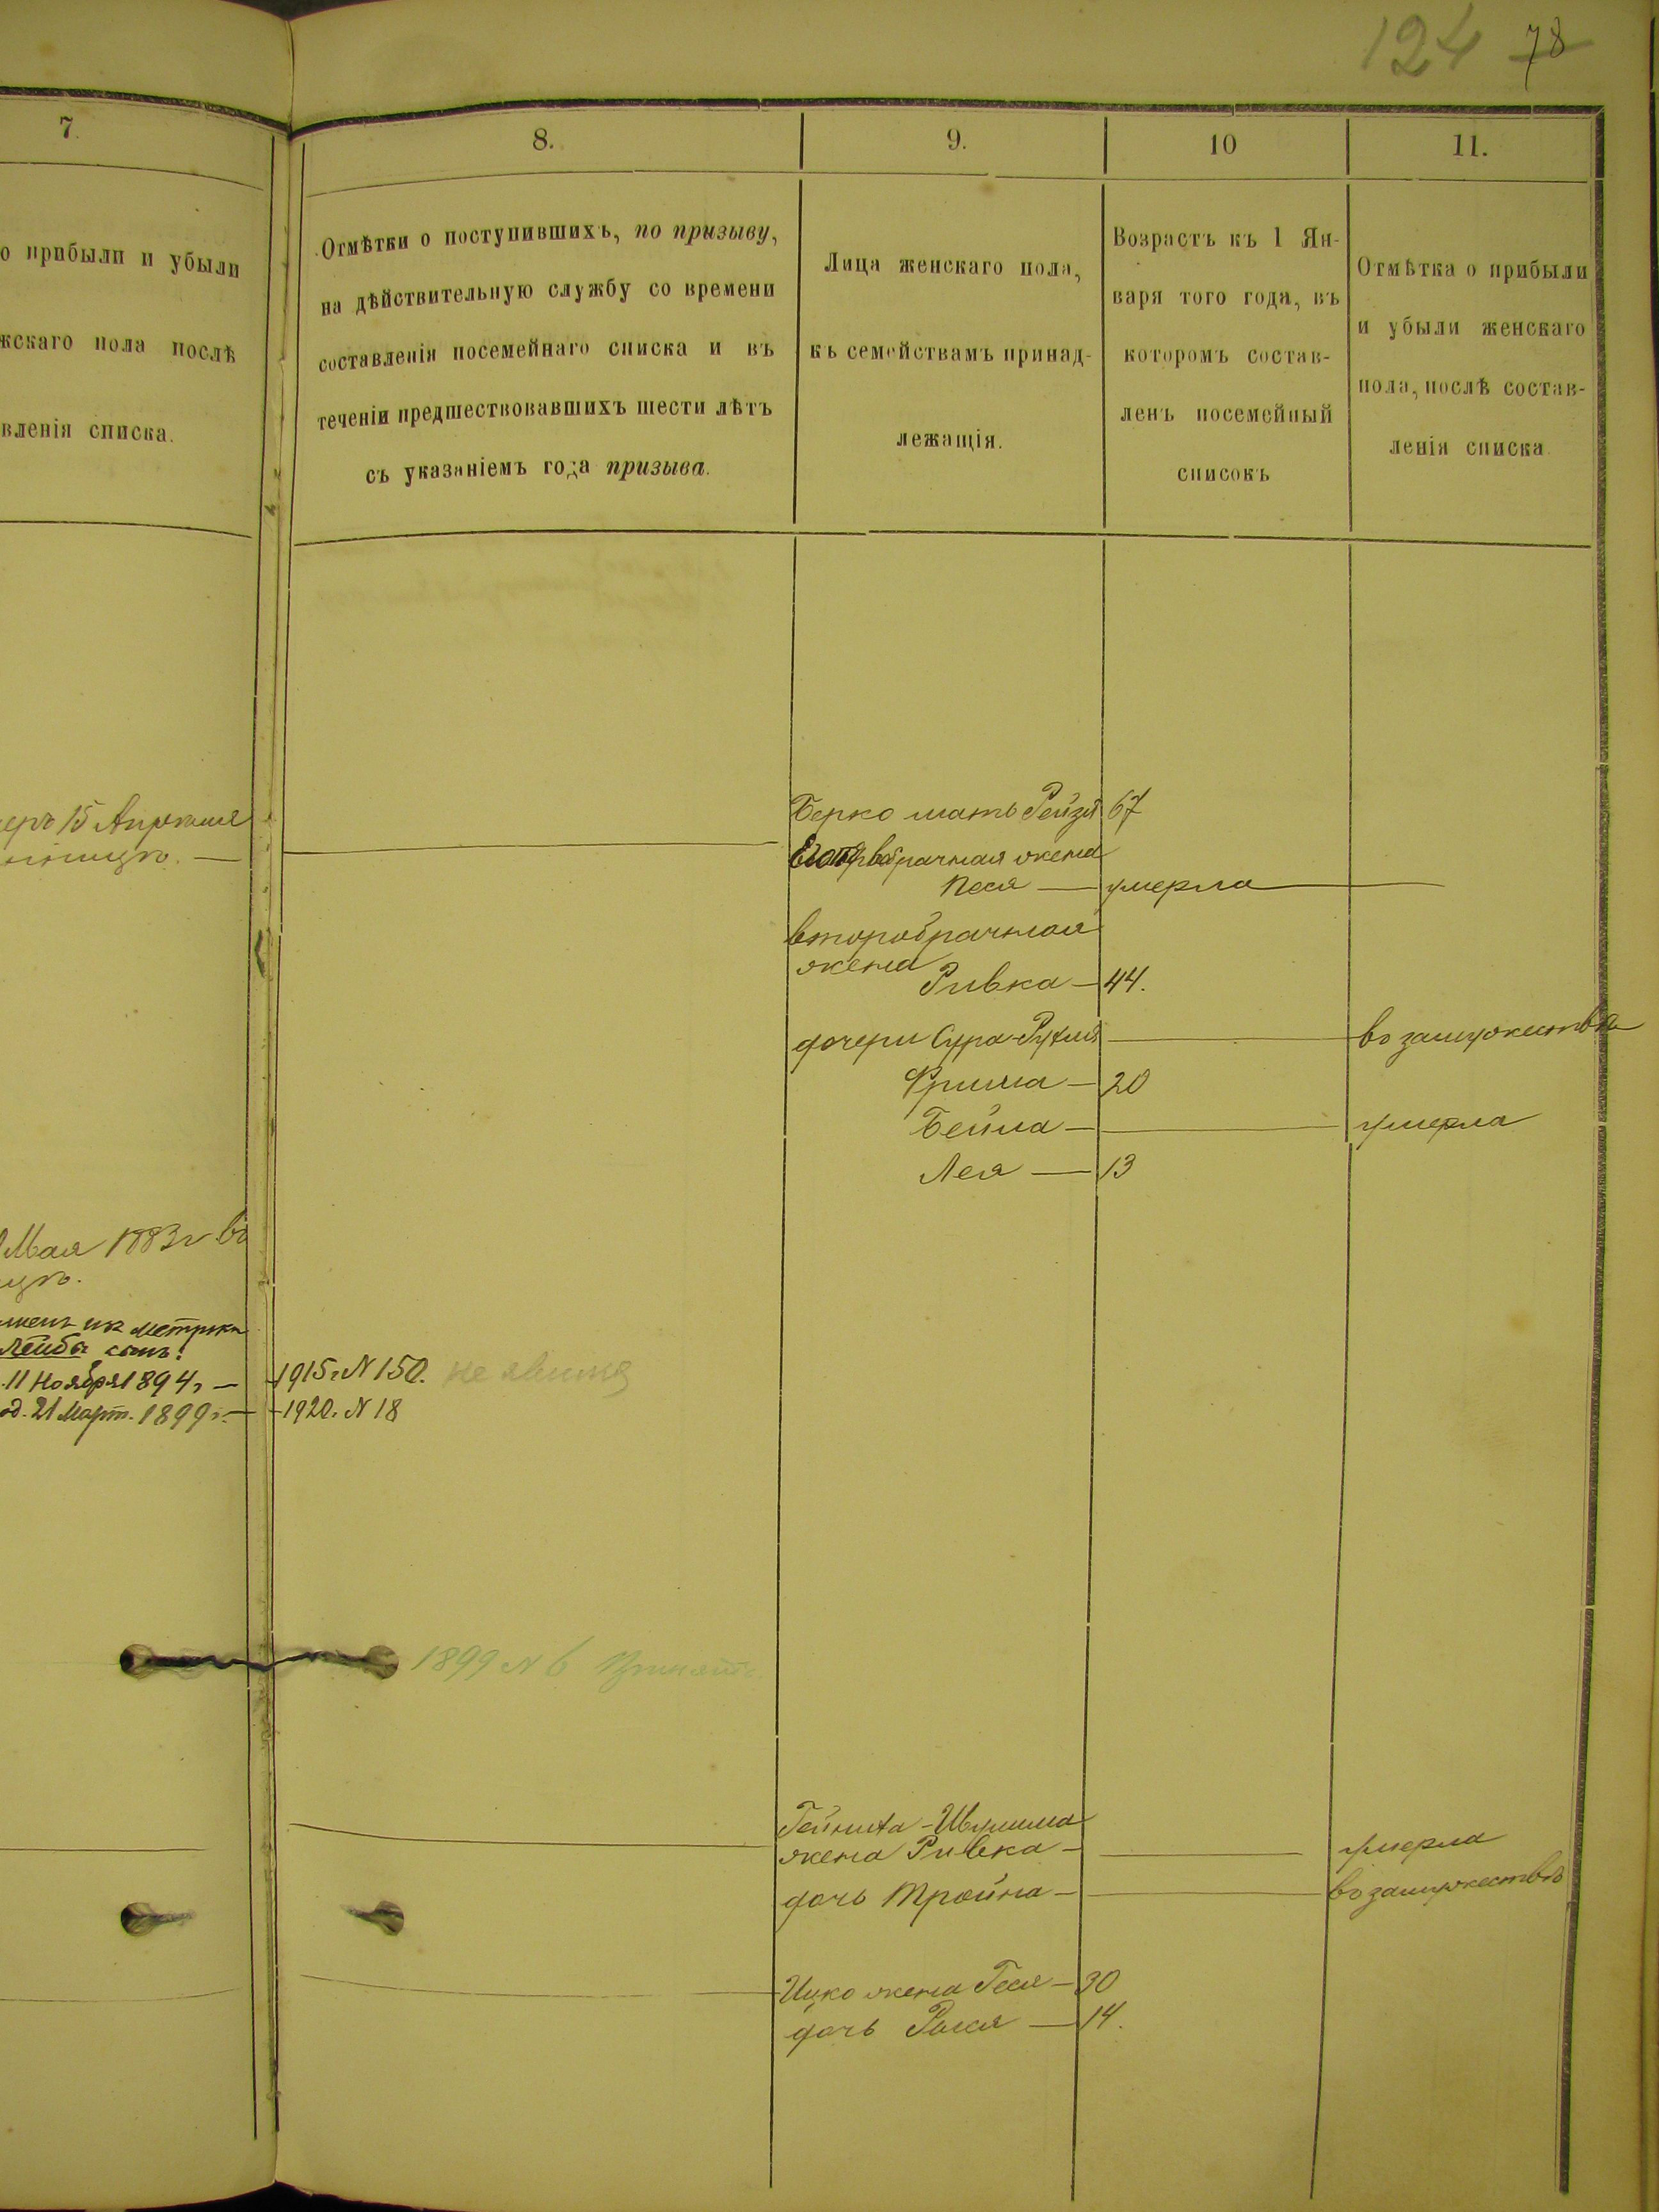 124 78
7.
8.
9.
10
11.
о прибыли и убыли
жскаго пола послѣ
вленія списка.
Отмѣтки о поступившихъ, по призыву,
на дѣйствительную службу со времени
составленія посемейнаго списка и въ
теченіи предшествовавшихъ шести лѣтъ
съ указаніемъ года призыва.
Лица женскаго пола,
къ семействамъ принад-
лежащія.
Возрастъ къ 1 Ян-
варя того года, въ
которомъ состав-
ленъ посемейный
списокъ
Отмѣтка о прибыли
и убыли женскаго
пола, послѣ состав-
ленія списка
еръ 15 Апрѣля
Берко мать Рейзя 67
Его первобрачная жена
Песя — умерла
второбрачная
жена
Ривка — 44.
дочери Сура-Рухля — въ замужествѣ
Фрима — 20
Бейла — умерла
Лея — 13
Мая 1883 г въ
цѣ.
менъ их метрики
Лейба сынъ.
11 Ноября 1894 г — 1915 г. N 150. не явился
од. 21 Март. 1899 г. — 1920. N 18
1899 N 6 Принятъ
жена Ривка — умерла
дочь Тройна — въ замужествѣ
Ицко жена Геся — 30
дочь Рося — 14.